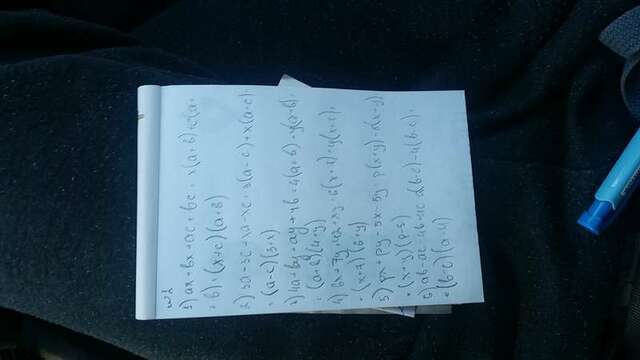 №1
1) ax+bx+ac+bc = x(a+b)+c(a+
+b) = (x+c)(a+b)
2) 3a-3c+xa-xc = 3(a-c)+x(a-c)=
= (a-c)(3+x)
3) 4a+by+ay+4b = 4(a+b)+y(a+b)=
= (a+b)(4+y)
4) 6x+7y+42+xy = 6(x+7)+y(x+7)=
= (x+7)(6+y)
5) px+py-5x-5y = p(x+y)-5(x+y)
= (x+y)(p-5)
6) ab-ac-4b+4c = a(b-c)-4(b-c)=
= (b-c)(a-4)